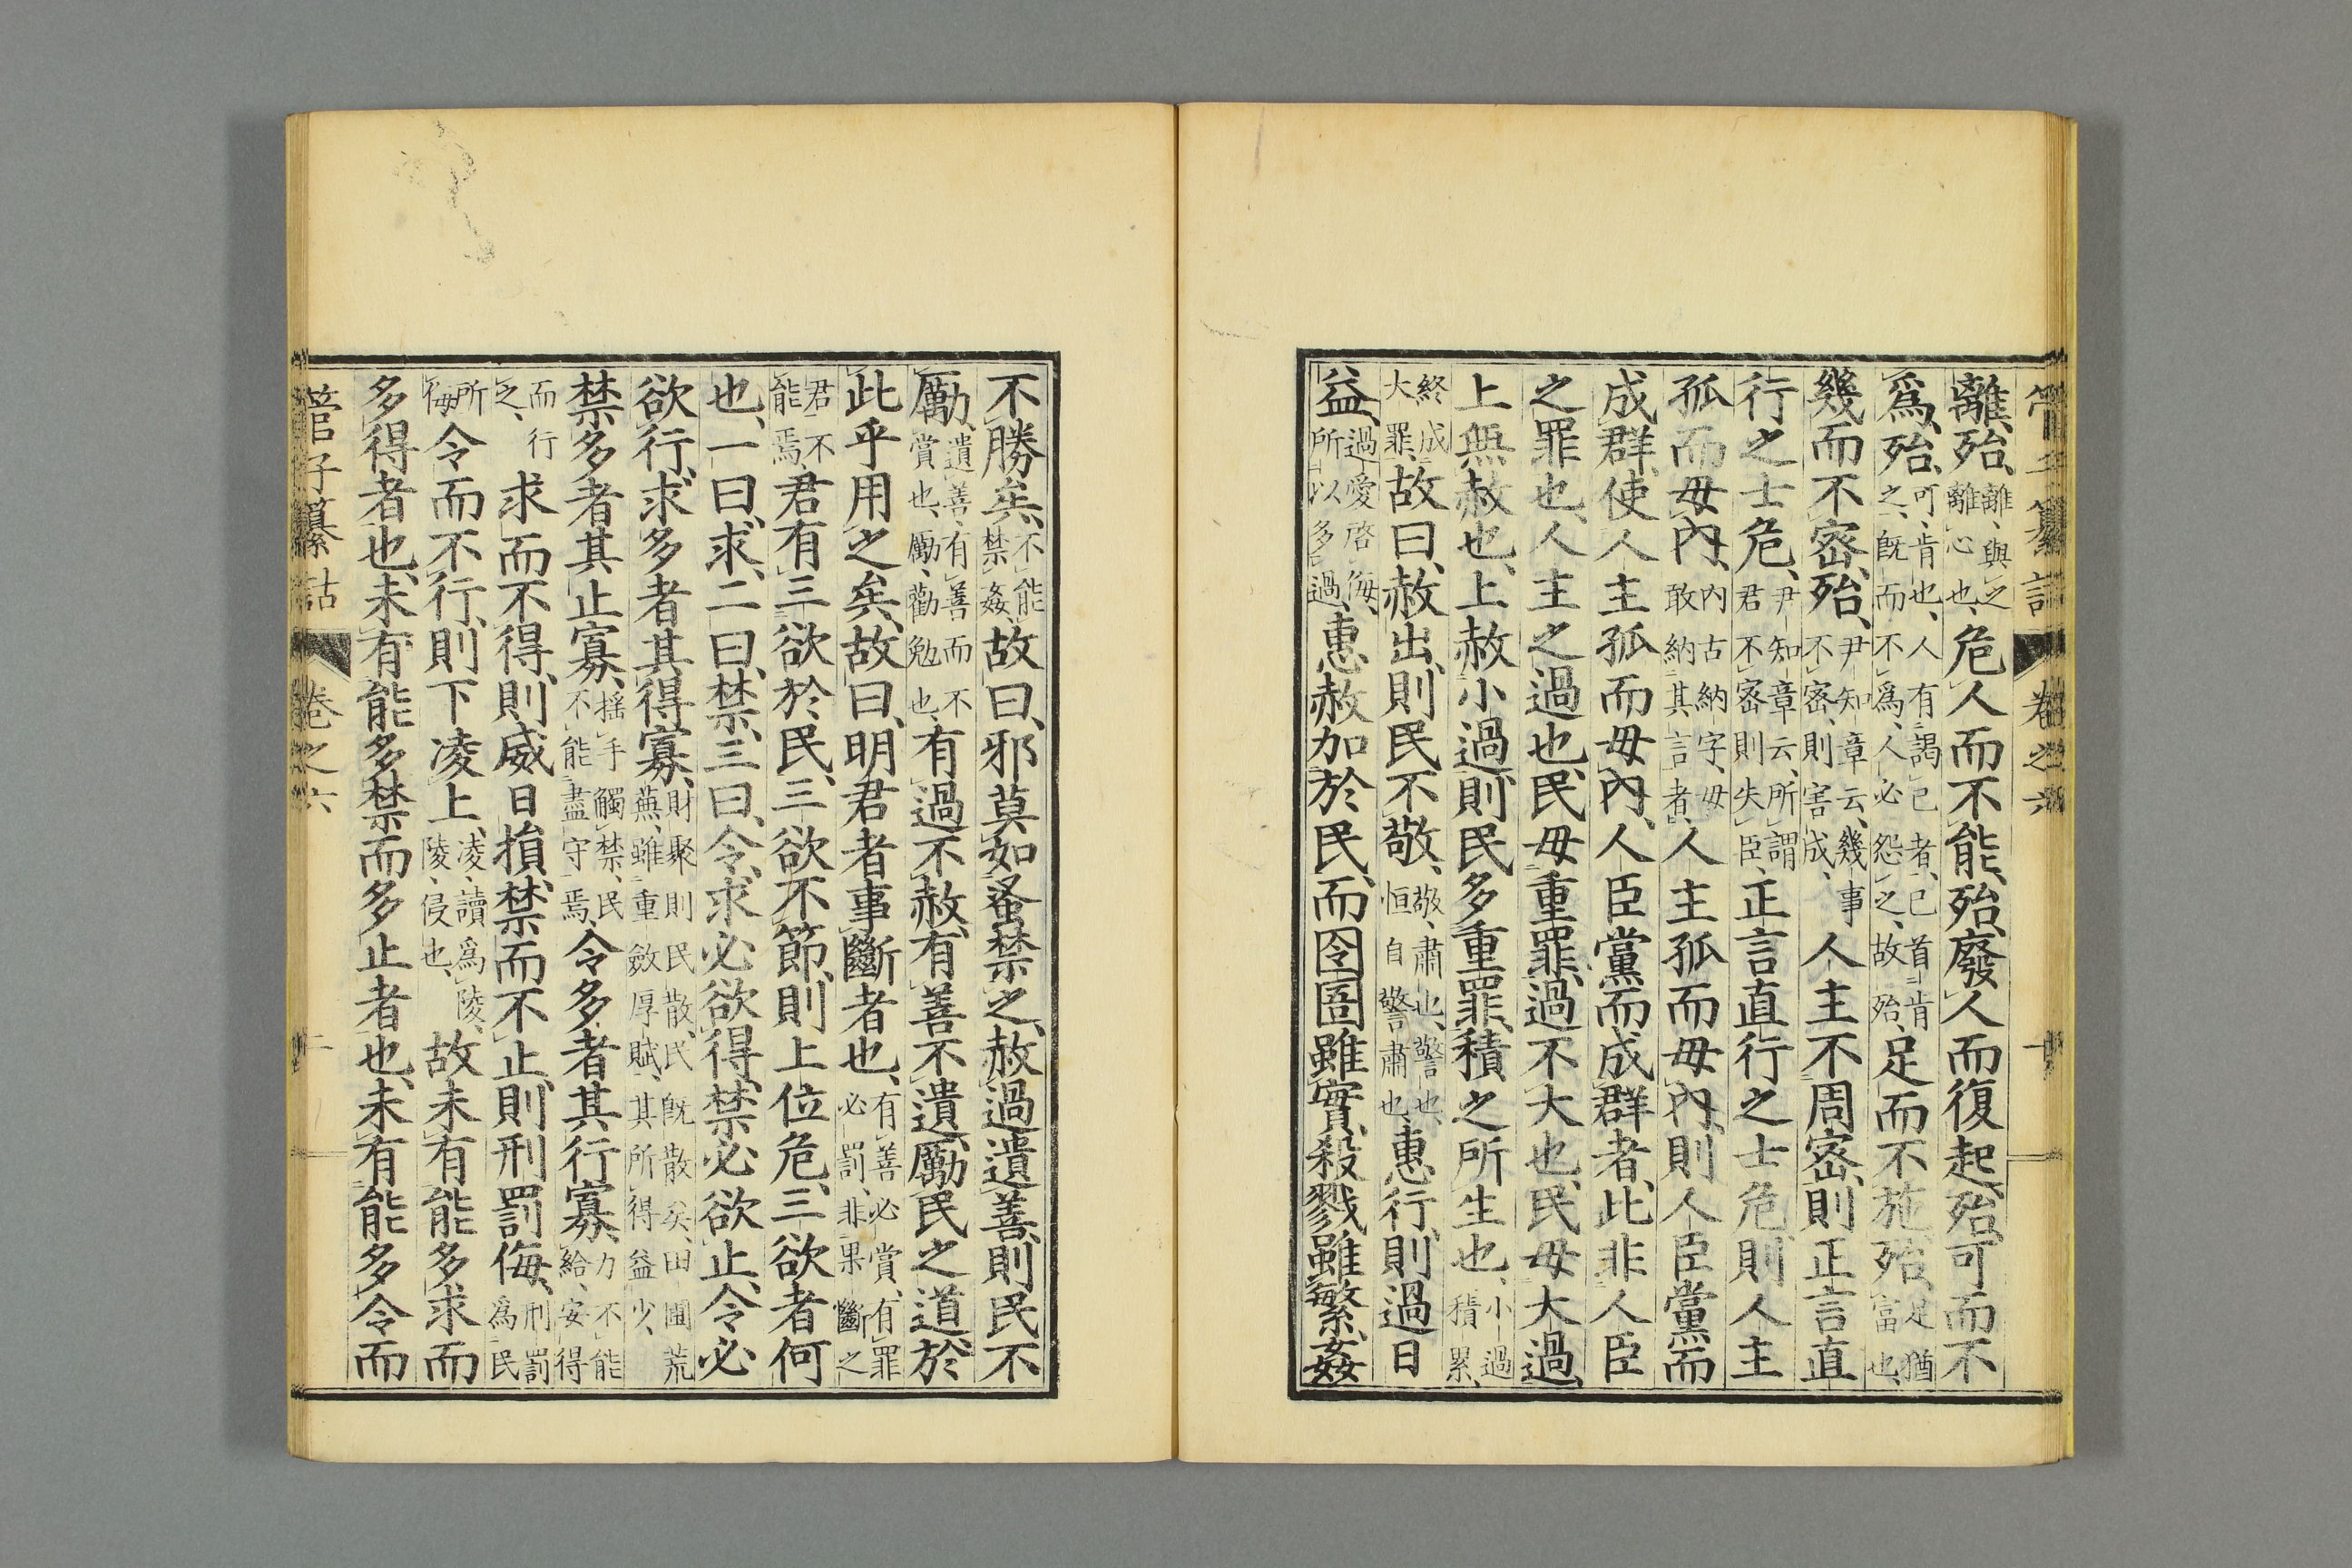 離殆、離、與之離心也、危人而不能、殆、廢人而復起、殆、可而不
爲、殆、可、肯也、人有謁己者、已首肯之、旣而不爲、人必怨之、故殆、足而不施、殆、足猶富也、
幾而不密、殆、尹知章云、幾事不密、則害成、人主不周密、則正言直
行之士危、尹知章云、所謂君不密則失臣、正言直行之士危、則人主
孤而毋內、內古納字、毋敢納其言者、人主孤而毋內、則人臣黨而
成群、使人主孤而毋內、人臣黨而成群者、此非人臣
之罪也、人主之過也、民毋重罪、過不大也、民毋大過、
上無赦也、上赦小過、則民多重罪、積之所生也、小過積累、
終成大罪、故曰、赦出、則民不敬、敬、肅也、警也、恒自警肅也、惠行、則過日
益、過愛啓侮、所以多過、惠赦加於民、而囹圄雖實、殺戮雖繁、姦
管子纂詁 卷之六 十
不勝矣、不能禁姦、故曰、邪莫如蚤禁之、赦過遺善、則民不
勵、遺善、有善而不賞也、勵、勸勉也、有過不赦、有善不遺、勵民之道、於
此乎用之矣、故曰、明君者事斷者也、有善必賞、有罪必罰、非果斷之
君不能焉、君有三欲於民、三欲不節、則上位危、三欲者何
也、一曰、求、二曰、禁、三曰、令、求必欲得、禁必欲止、令必
欲行、求多者其得寡、財聚則民散、民旣散矣、田圃荒蕪、雖重斂厚賦、其所得益少、
禁多者其止寡、搖手觸禁、民不能盡守焉、令多者其行寡、力不能給、安得
而行之、求而不得、則威日損、禁而不止、則刑罰侮、刑罰爲民
所侮、令而不行、則下凌上、凌、讀爲陵、陵、侵也、故未有能多求而
多得者也、未有能多禁而多止者也、未有能多令而
管子纂詁 卷之六